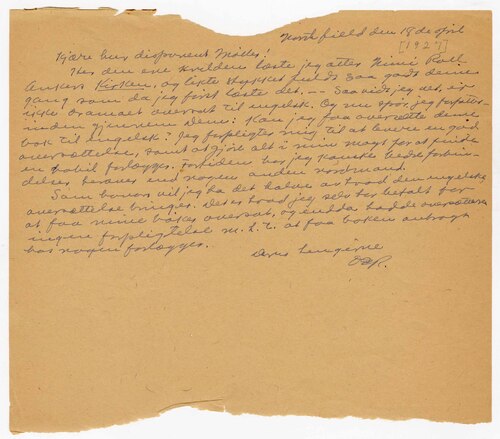 Northfield den 18de april
[1927]
Kjære herr disponent Møller!
Her den ene kvelden læste jeg atter Nini Roll
Ankers Kirken, og likte stykket fuldt saa godt denne
gang som da jeg først læste det. — Saavidt jeg vet, er
ikke dramaet oversat til engelsk. Og nu spør jeg forfatter-
inden gjennem Dem: Kan jeg faa oversætte denne
bok til engelsk? Jeg forpligter mig til at levere en god
oversættelse, samt at gjøre alt i min magt for at finde
en habil forlægger. For tiden har jeg kanske bedre forbin-
delser herover end nogen anden nordmand.
Som honorar vil jeg ha det halve av hvad den engelske
oversættelse bringer. Det er hvad jeg selv har betalt for
at faa mine bøker oversat, og endda hadde oversætteren
ingen forpligtelse m.h.t. at faa boken antagt
hos nogen forlægger.
Deres hengivne
OER.